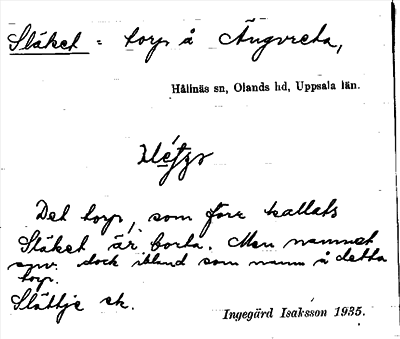 Släket = torp å Ängvreta,
Hållnäs sn, Olands hd, Uppsala län.
Det torp, som förr kallats
Släket är borta. Men namnet
dock ibland som namn å detta
torp.
Slättje sk.
Ingegärd Isaksson 1935.